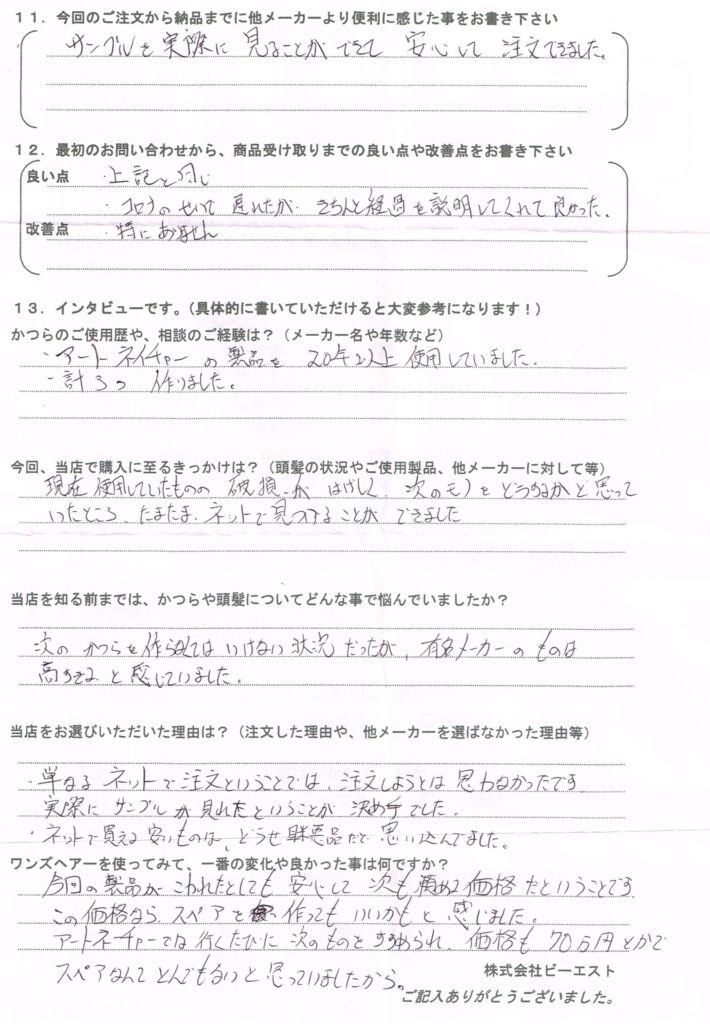 11．今回のご注文から納品までに他メーカーより便利に感じた事をお書き下さい
サンプルを実際に見ることができて 安心して 注文できました。
12．最初のお問い合わせから、商品受け取りまでの良い点や改善点をお書き下さい
良い点 ・上記と同じ
・コロナのせいで 遅れたが きちんと経過を説明してくれて良かった．
改善点 ・特にありません
13．インタビューです。（具体的に書いていただけると大変参考になります！）
かつらのご使用歴や、相談のご経験は？（メーカー名や年数など）
・アートネイチャーの製品を 20年以上使用していました．
・計3つ 作りました。
今回、当店で購入に至るきっかけは？（頭髪の状況やご使用製品、他メーカーに対して等）
現在使用していたものの 破損が はげしく 次のモノをどうするかと思って
いたところ、たまたま ネットで見つけることが できました
当店を知る前までは、かつらや頭髪についてどんな事で悩んでいましたか？
次の かつらを作らなくては いけない状況だったが，有名メーカーのものは
高すぎる と感じていました。
当店をお選びいただいた理由は？（注文した理由や、他メーカーを選ばなかった理由等）
・単なる ネットで注文ということでは，注文しようとは思わなかったです
実際に サンプルが見れたということが 決め手でした．
・ネットで買える安いものは，どうせ 粗悪品だと 思い込んでました。
ワンズヘアーを使ってみて、一番の変化や良かった事は何ですか？
今回の製品が こわれたとしても 安心して 次も頼める価格だということです
この価格なら スペアを 作っても いいかもと 感じました。
アートネーチャーでは 行くたびに 次のものを すすめられ，価格も 70万円とかで
スペアなんて とんでもないと 思っていましたから。
株式会社ビーエスト
ご記入ありがとうございました。